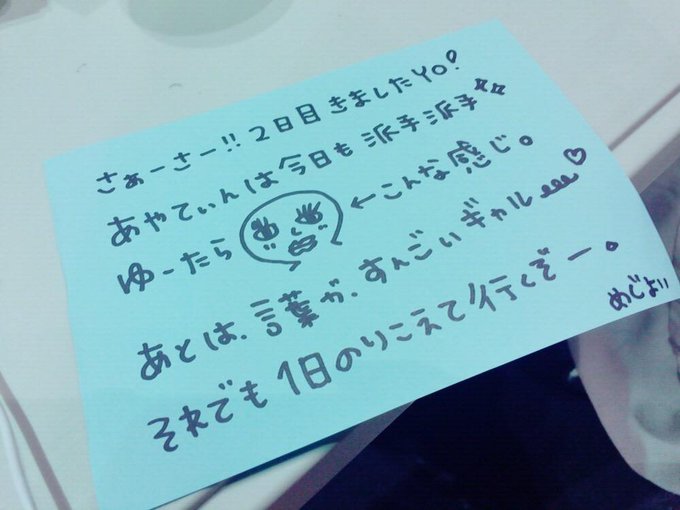 さぁーさー!! 2日目きましたYO!
あやてぃんは今日も派手派手
ゆーたら ←こんな感じ。
あとは、言葉が、すんごいギャル♡
それでも1日のりこえて行くぞー。
めじょ